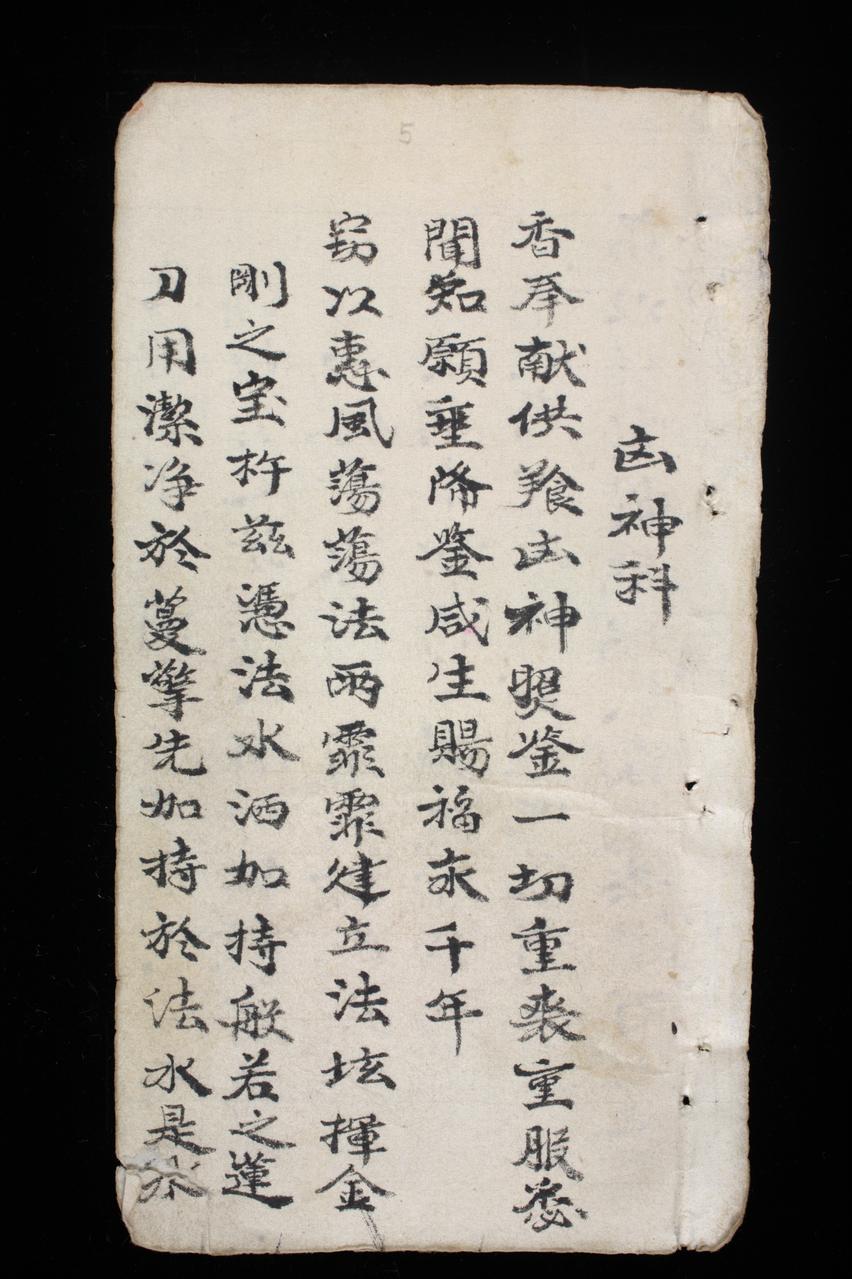 凶神科
香奉献供飱凶神照鉴一切重丧重服悉
聞知願垂降鉴咸生賜福永千年
窃以惠風蕩蕩法雨霏霏建立法坛揮金
剛之宝杵兹憑法水洒加持般若之蓮
刀用潔净於蔓擎先加持於法水是水
5